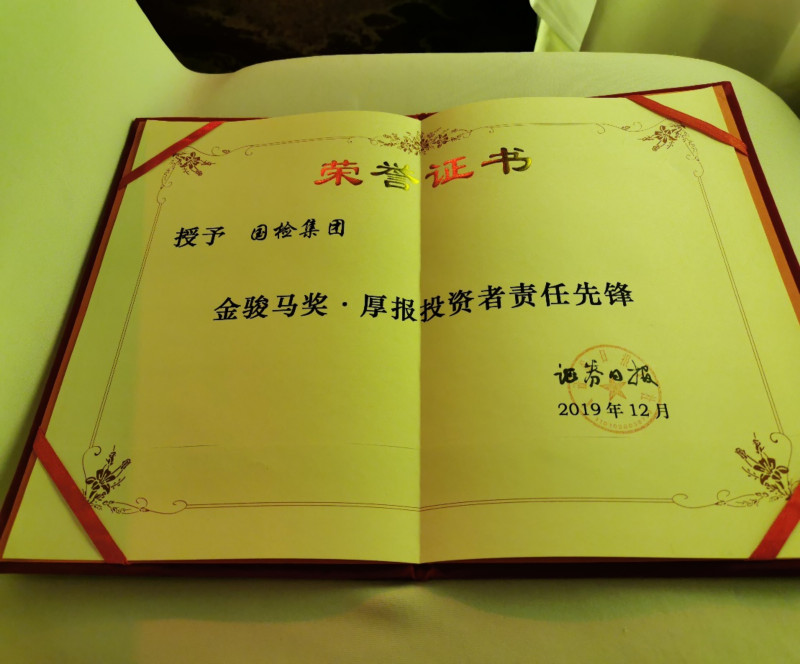 荣誉证书
授予 国检集团
金骏马奖·厚报投资者责任先锋
证券日报
2019年12月